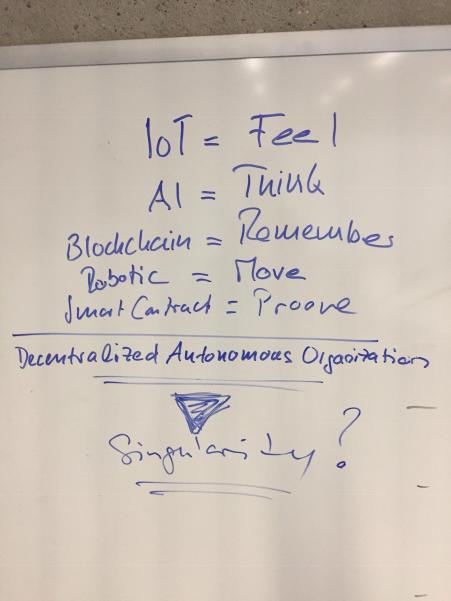 IoT = Feel
AI = Think
Blockchain = Remember
Robotic = Move
Smart Contract = Proove
Decentralized Autonomous Organization
Singularity?